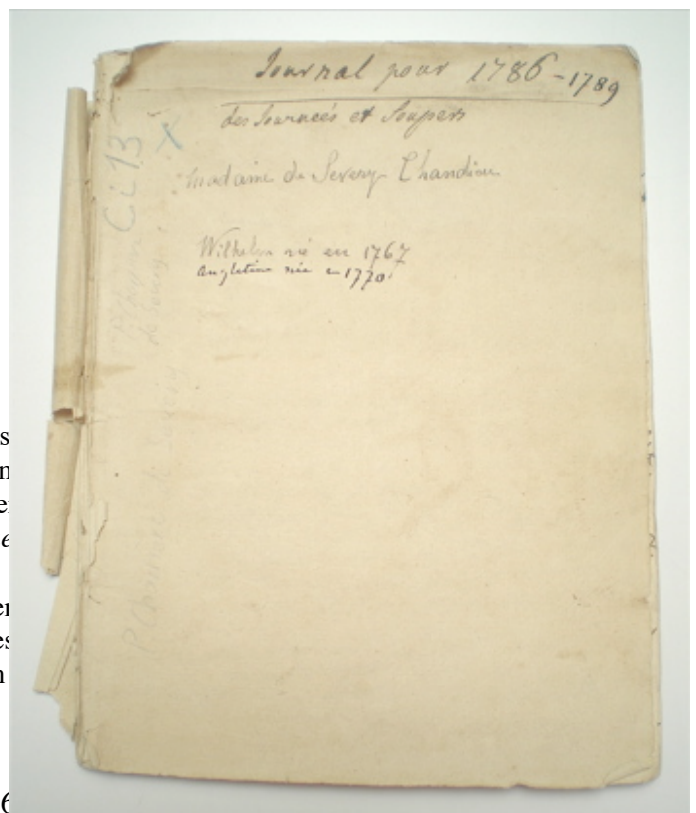 Journal pour 1786-1789
des Journées et Soupers
Madame de Severy Chandieu
Wilhelm né en 1767
Angletine née en 1770
Ci 13
X
de Severy
s
n
e
er
es
n
6